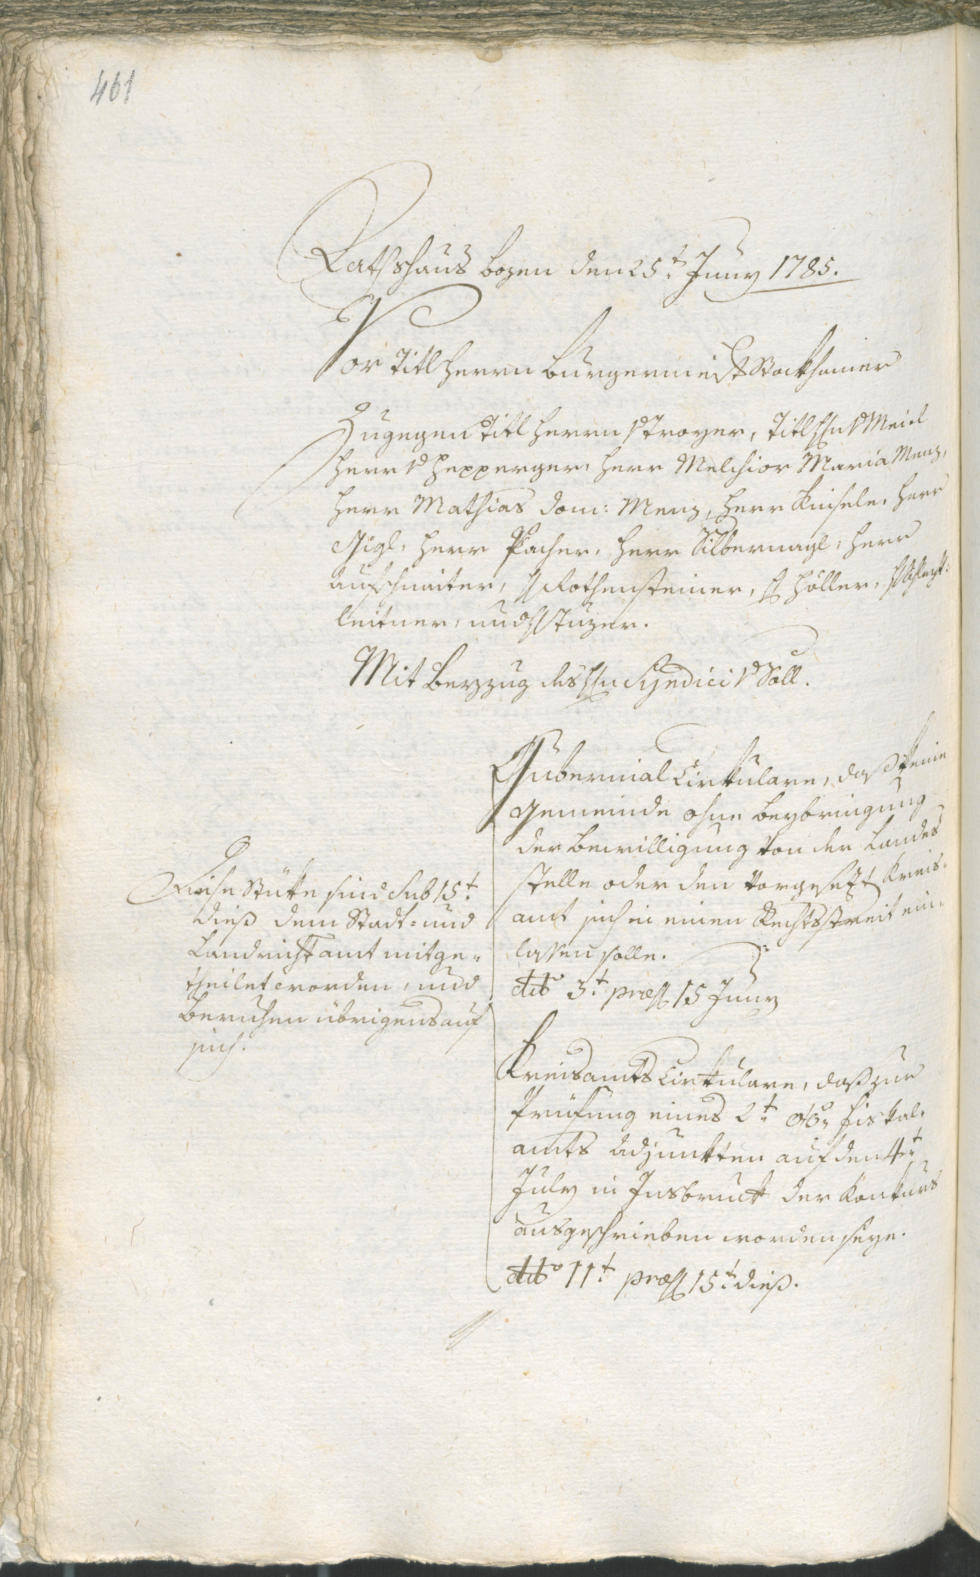 461
Rathshaus bozen den 25t. Juny 1785.
Vor Titl Herrn Burgermeister Stockhamer
Zugegen Titl Herrn v Troyer, Titl Hn v Menz
Herr v Hepperger, Herr Melchior Maria Menz,
Herr Mathias Dom: Menz, Herr Kinsele, Herr
Gigl, Herr Pacher, Herr Silbernagl, Herr
aufschnaiter, H Rothensteiner, H Höller, H
leitner, und H Stuzer.
Mit Beyzug des Hn Syndici v Söll.
Gubernial Cirkulare, daß keine
Gemeinde ohne beybringung
der bewilligung von der Landes
stelle oder den Vorgesezt Kreis-
amt sich in einen Rechtsstreit ein-
lassen solle.
dto 3t. præs 15 Juny
Diese Stüke sind sub 15t.
dieß dem Stadt- und
Landrichtamt mitge-
theilet worden, und
beruhen übrigens auf
sich.
Kreisamts Cirkulare, daß zur
Prüfung eines 2t. oö: Fiskal-
amts adjunkten auf den 4t
July in Insbruck der Konkurs
ausgeschrieben worden seye.
dto 11t. præs 15t. dieß.